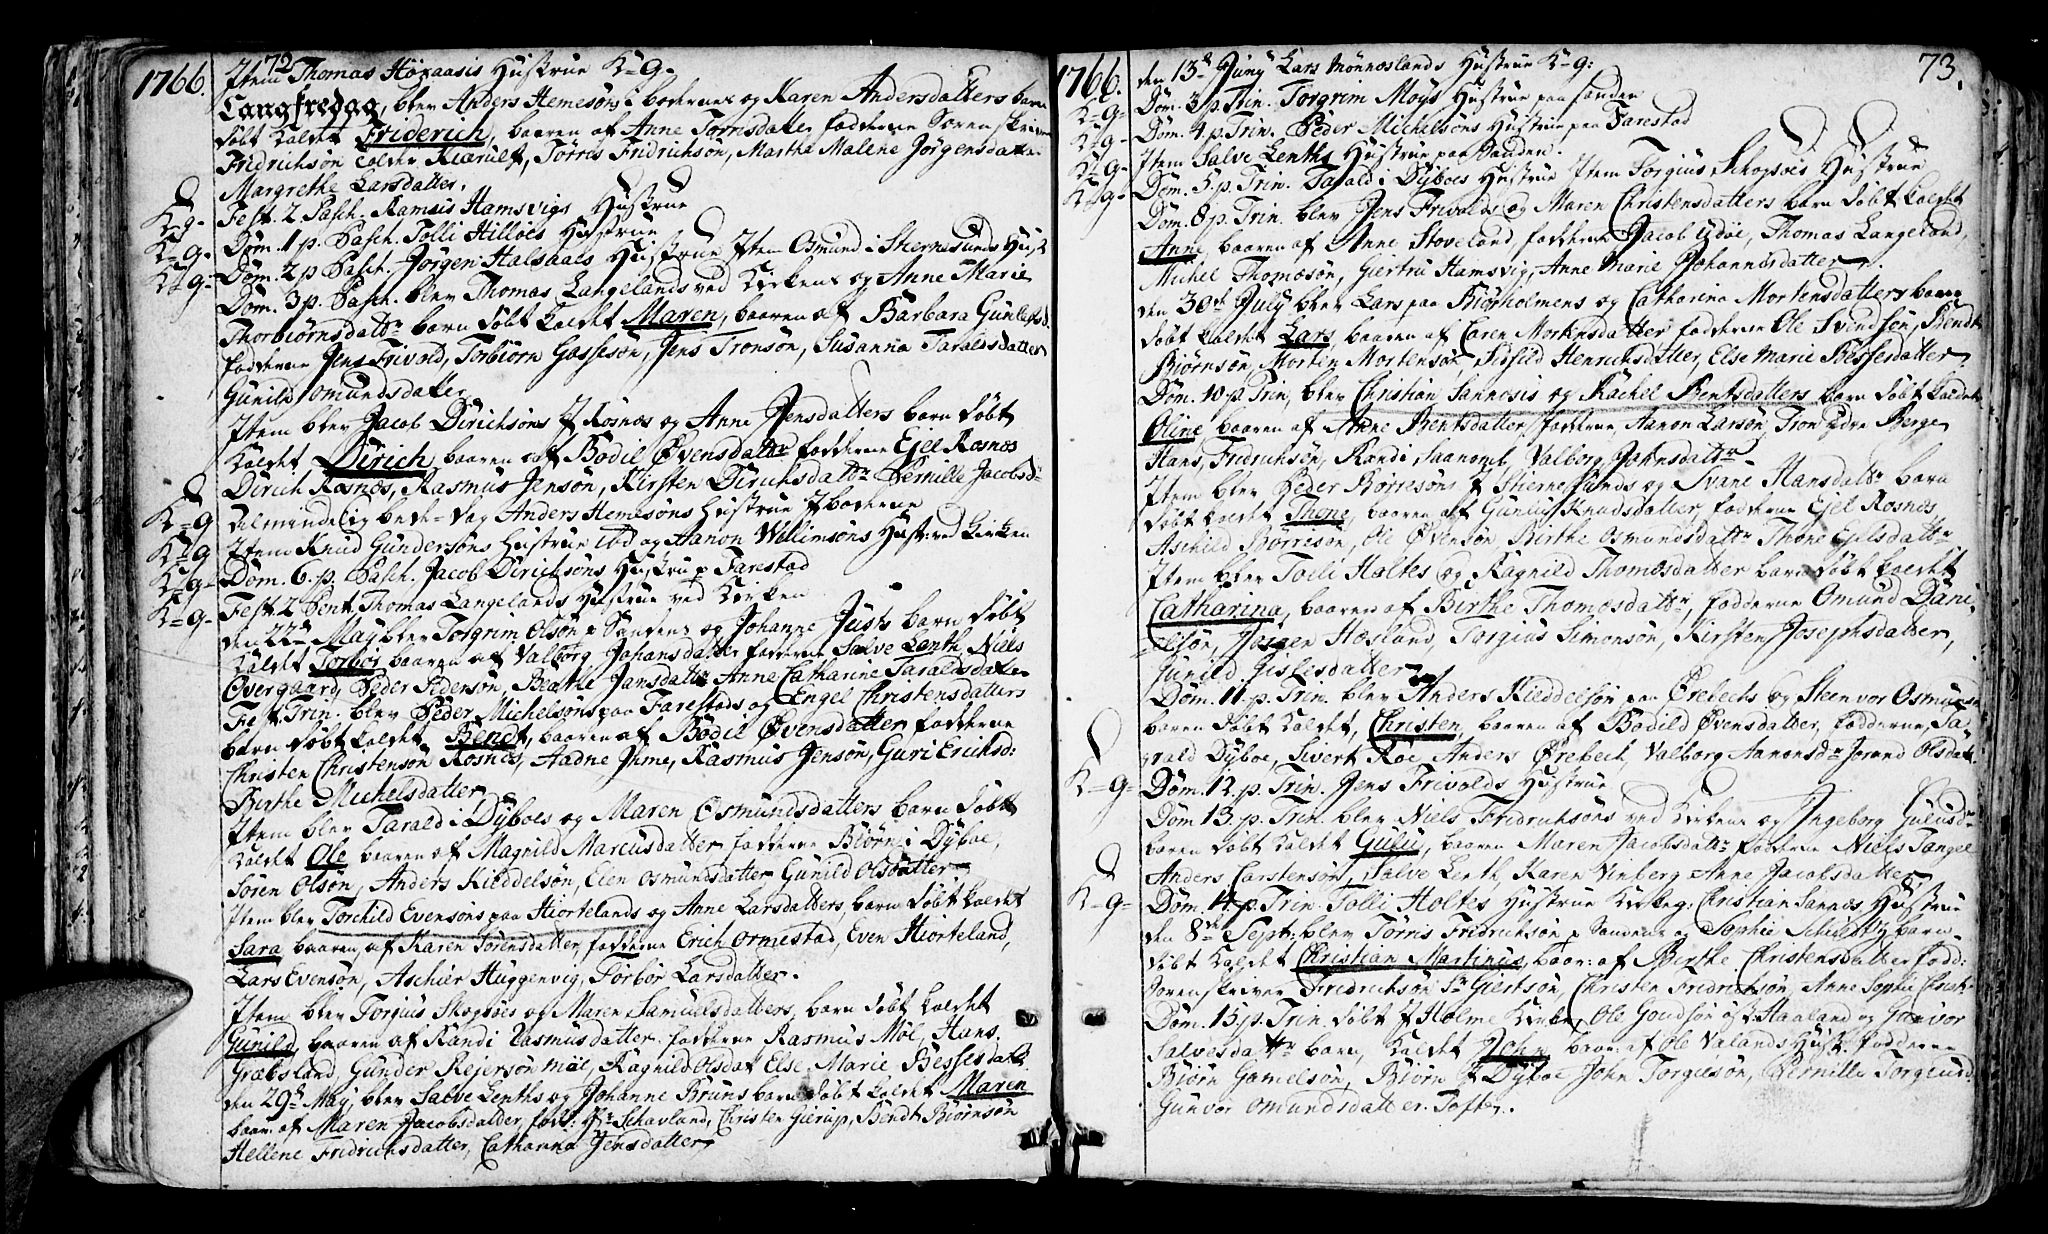 72
1766. Item Thomas Höxaasis Hustrue K=g=
Langfredag, blev Anders Hemesøns i boderne og Karen Andersdatters barn
døbt kaldet Friderich, baaren af Anne Tørrisdatter fadderne Soren skriver
Fridrichsön Tørris Fridrichsön, Martha Malene Jørgensdatter
Margrethe Larsdatter.
K=g= Fest. 2 Pasch. Hamsvigs Hustrue
K=g= Dom. 1 p. Pasch. Tolli Hilloes Hustrue
K=g= Dom. 2 p Pasch. Jörgen Halsaais Hustrue Item Osmund i Skernesunds Hust
Dom. 3 p. Pasch. blev Thomas Langelands ved Kirken og Anne Marie
Thorbiörnsdattr barn döbt kaldet Maren, baaren af Barbara
fadderne Jens Frivold, Torbiörn Gassesön, Jens Tronsön, Susanna Taraldsdatter
Gunild Omundsdatter
Item blev Jacob Dirichsöns Rosnæs og Anne Jensdatters barn döbt
kaldet Dirich baaren af Bodil Øvensdattr fadderne Ejel Rosnæs
Dirich Rosnæs, Rasmus Jensön, Kirsten Dirichsdattr Pernille Jacobsd
K=g Almindelig bede=dag Anders Hemesöns Hustrue boderne
K=g Item Knud Gundersöns Hustrue ibd og Aanon Willimsöns Hust: ved Kirken
K=g= Dom. 6. p. Pasch. Jacob Dirichsöns Hustru p Farestad
K=g= Fest. 2 Pent. Thomas Langelands Hustrue ved Kirken
den 22de Maij blev Torgrim Olsön p Sandens og Johanne Justs barn döbt
kaldet Torbor baaren af Valborg Johansdatter fadderne Salve Lenth, Niels
Overgaard, Peder Pedersön, Beathe Jansdattr Anne Catharine Taraldsdatter
Fest. Trin. blev Peder Michelsöns paa Farestads og Engel Christensdatters
barn döbt kaldet Bendt, baaren af Bodil Øvensdatter fadderne
Christen Christensön Rosnes, Aadne Ihme, Rasmus Jensön, Guri Ericksd:
Birthe Michelsdatter
Item blev Tarald Dÿboes og Maren Osmundsdatters barn döbt
kaldet Ole baaren af Magnild Marcusdatter fadderne Biörn i Dÿboe,
Sören Olsön, Anders Kieddelsön, Eien Osmundsdatter Gunild Olsdatter
Item blev Torchild Evensöns paa Hiortelands og Anne Larsdatters barn döbt kaldet
Sara baaren af Karen Sörensdatter, fadderne Erich Ormestad, Even Hiorteland,
Lars Evensön, Aschier Huggenvig, Torbor Larsdatter.
Item blev Torjus Skogsöes og Maren Samuelsdatters, barn döbt kaldet
Gunild, baaren af Randi Rasmusdatter. fadderne Rasmus Möl, Hans
Græbsland, Gunder Rejersön möl, Ragnild Olsdat Else Marie Bessesdattr
den 29de Maÿ, blev Salve Lenths og Johanne Bruns barn döbt kaldet Maren
baar: af Maren Jacobsdatter, fad: Schavland, Christen Gierup, Bendt Biörnsön
Hellene Fridrichsdatter, Catharina Jensdatter
73.
1766. den 13de Junÿ Lars Monnæslands Hustrue K=g:
K=g= Dom. 3 p. Trin. Torgrim Moÿs Hustrue paa sanden
K=g= Dom. 4 p. Trin. Peder Michelsöns Hustrue paa Farestad
K=g= Item Salve Lenths Hustrue paa Sanden.
K=g= Dom. 5. p. Trin. Tarald i Dÿboes Hustrue Item Torgius Skogsöes Hustrue
Dom. 8 p. Trin blev Jens Frivolds og Maren Christensdatters barn döbt kaldet
Anne, baaren af Anne Stoveland, fadderne Jacob Ydöe, Thomas Langeland,
Michel Thomæsön, Giertru Hamsvig, Anne Marie Johannesdatter.
den 30te Julÿ blev Lars paa Biörholmens og Catharina Mortensdatters barn
döbt kaldet Lars, baaren af Caren Mortensdatter fadderne Ole Svendsön, Bendt
Biörnsön, Morten Mortensön, Sidsild Henrichsdatter, Else Marie Bessesdatter
Dom. 10 p. Trin, blev Christian Sannesis og Rachel Bentsdatters barn döbt kaldet
Oline baaren af Anne Bentsdatter, fadderne, Aanon Larsön, Tron Ydre Berge
Hans Fridrichsön, Randi Saanomb, Valborg Johnsdattr
Item blev Peder Börresöns Skiernesunds og Svane Hansdattr barn
döbt kaldet Thone, baaren af Gunius Knudsdatter, fadderne Ejel Rosnes
Aschild Börresön, Ole Øvensön, Birthe Osmundsdattr Thone Ejelsdattr
Item blev Tolli Holtes og Ragnild Thomæsdatter barn döbt kaldet
Catharina, baaren af Birthe Thomæsdattr, fadderne Omund Dani=
elsön, Jörgen Hæsland, Torgius Simonsön, Kirsten Josephsdatter,
Gunild Gislisdatter
Dom. 11. p. Trin. blev Anders Kieddelsön paa Ørebechs og Steenvor Osmunsd
baren döbt kaldet, Christen, baaren af Bodild Øvensdatter, fadderne, Ta=
rald Dÿboe, Sivert Roe, Anders Ørebech, Valborg Aanonsdr Jorand Olsdatr
K=g= Dom. 12. p. Trin. Jens Frivolds Hustrue
Dom 13. p. Trin blev Niels Fridrichsöns ved Kirkene og Ingeborg Gulusdr
baren döbt kaldet Gulu, baaren Maren Jacobsdattr fadderne Niels Tangel
Anders Carstensön, Salve Lenth, Karen Vinberg Anne Jacobsdatter
K=g= Dom. 14. p. Trin. Tolli Holtes Hustrue Kirkeg: Christian Sannæs Hustrue
den 8de Sept: blev Törris Fridrichsön p Sandene og Sophie barn
döbt kaldet Christian Martinus, baar: af Birthe Christensdatter fadd:
Sorenskriver Fridrichsön Sr Giertsön, Christen Fridrichsön, Anne Sophie
Dom. 15. p. Trin. döbt Holme Kirke, Ole Goudsön Haaland og Gunvor
Salvesdattr barn, kaldet John baar: af Ole Valands Hust. fadderne
Biörn Gamelsön, Biörn Dÿboe John Torgiesön, Pernille
Gunvor Omundsdatter Tofte.